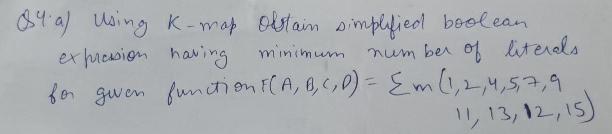 Q4.a) Using K-map Obtain simplified boolean
expression having minimum number of literals
for given function F(A, B, C, D) = Σm(1, 2, 4, 5, 7, 9
11, 13, 12, 15)